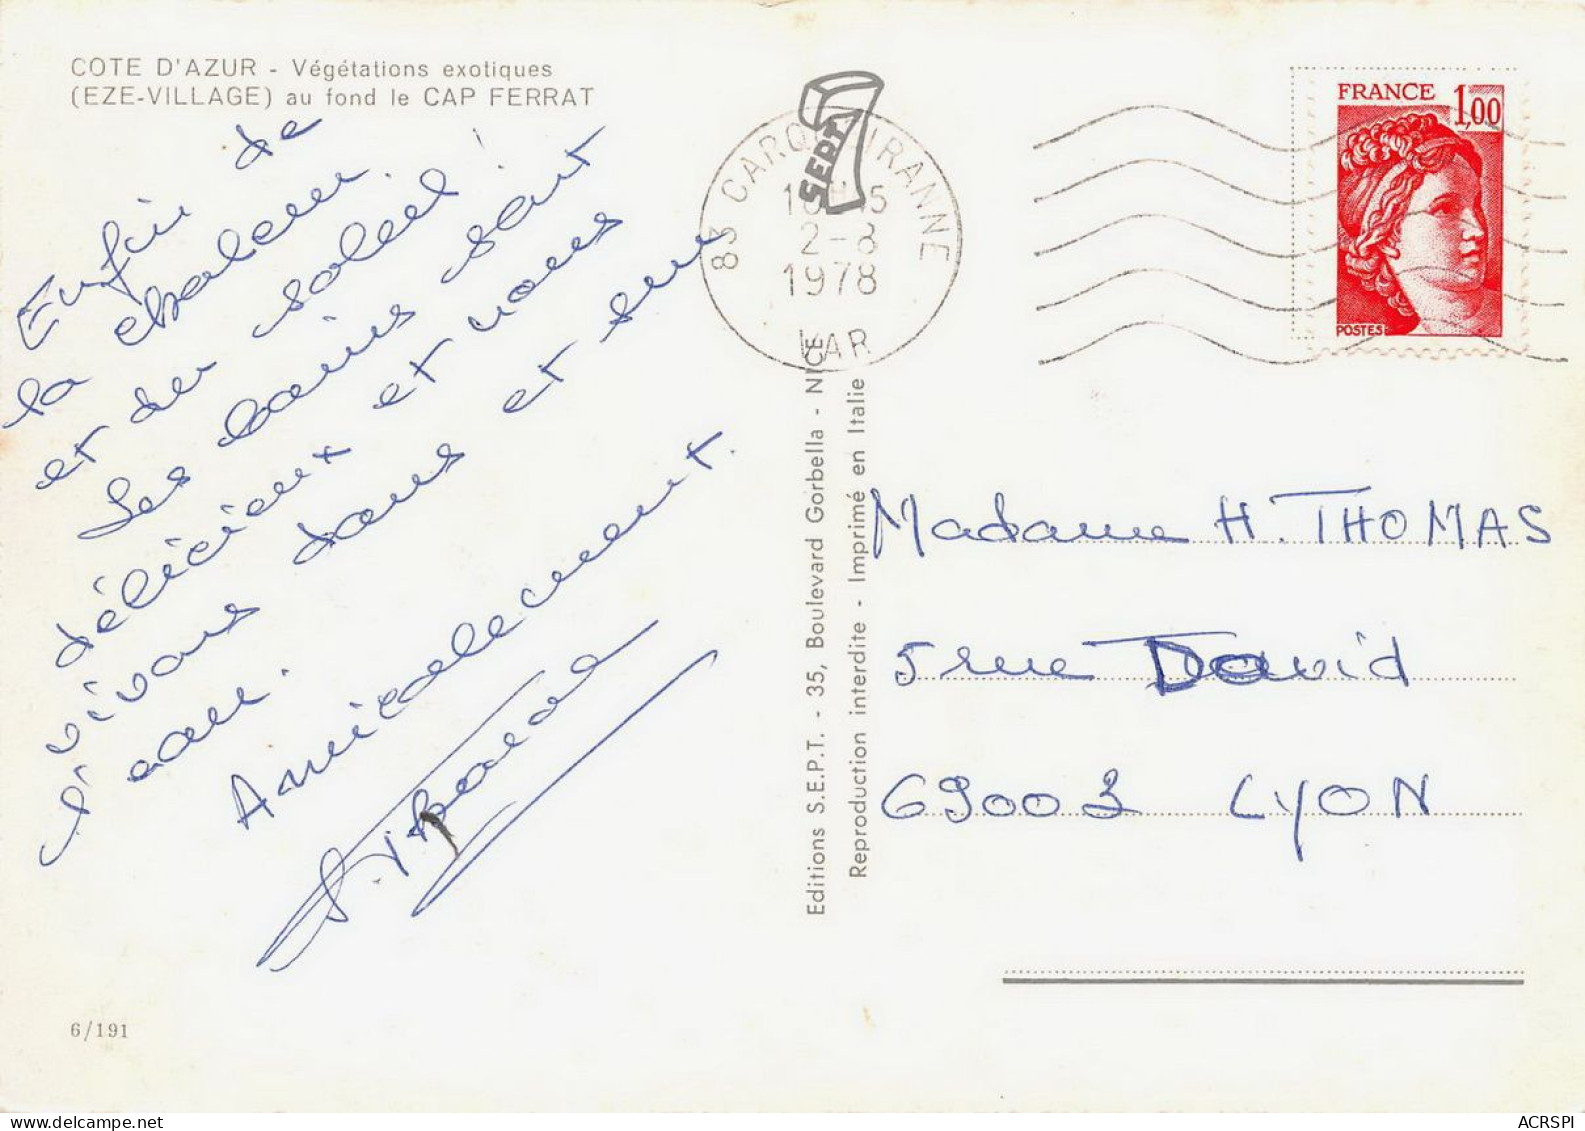 COTE D'AZUR - Végétations exotiques
(EZE-VILLAGE) au fond le CAP FERRAT
Enfin de
la chaleur.
et du soleil !
Les bains sont
délicieux et nous
vivons dans et sur
l'eau.
Amicalement.
6/191
Editions S.E.P.T. - 35, Boulevard Gorbella - NICE
Reproduction interdite - Imprimé en Italie
SEPT
83 CARQUEIRANNE
2-8
1978
VAR
FRANCE 1,00
POSTES
Madame H. THOMAS
5 rue David
69003 LYON
ACRSPI